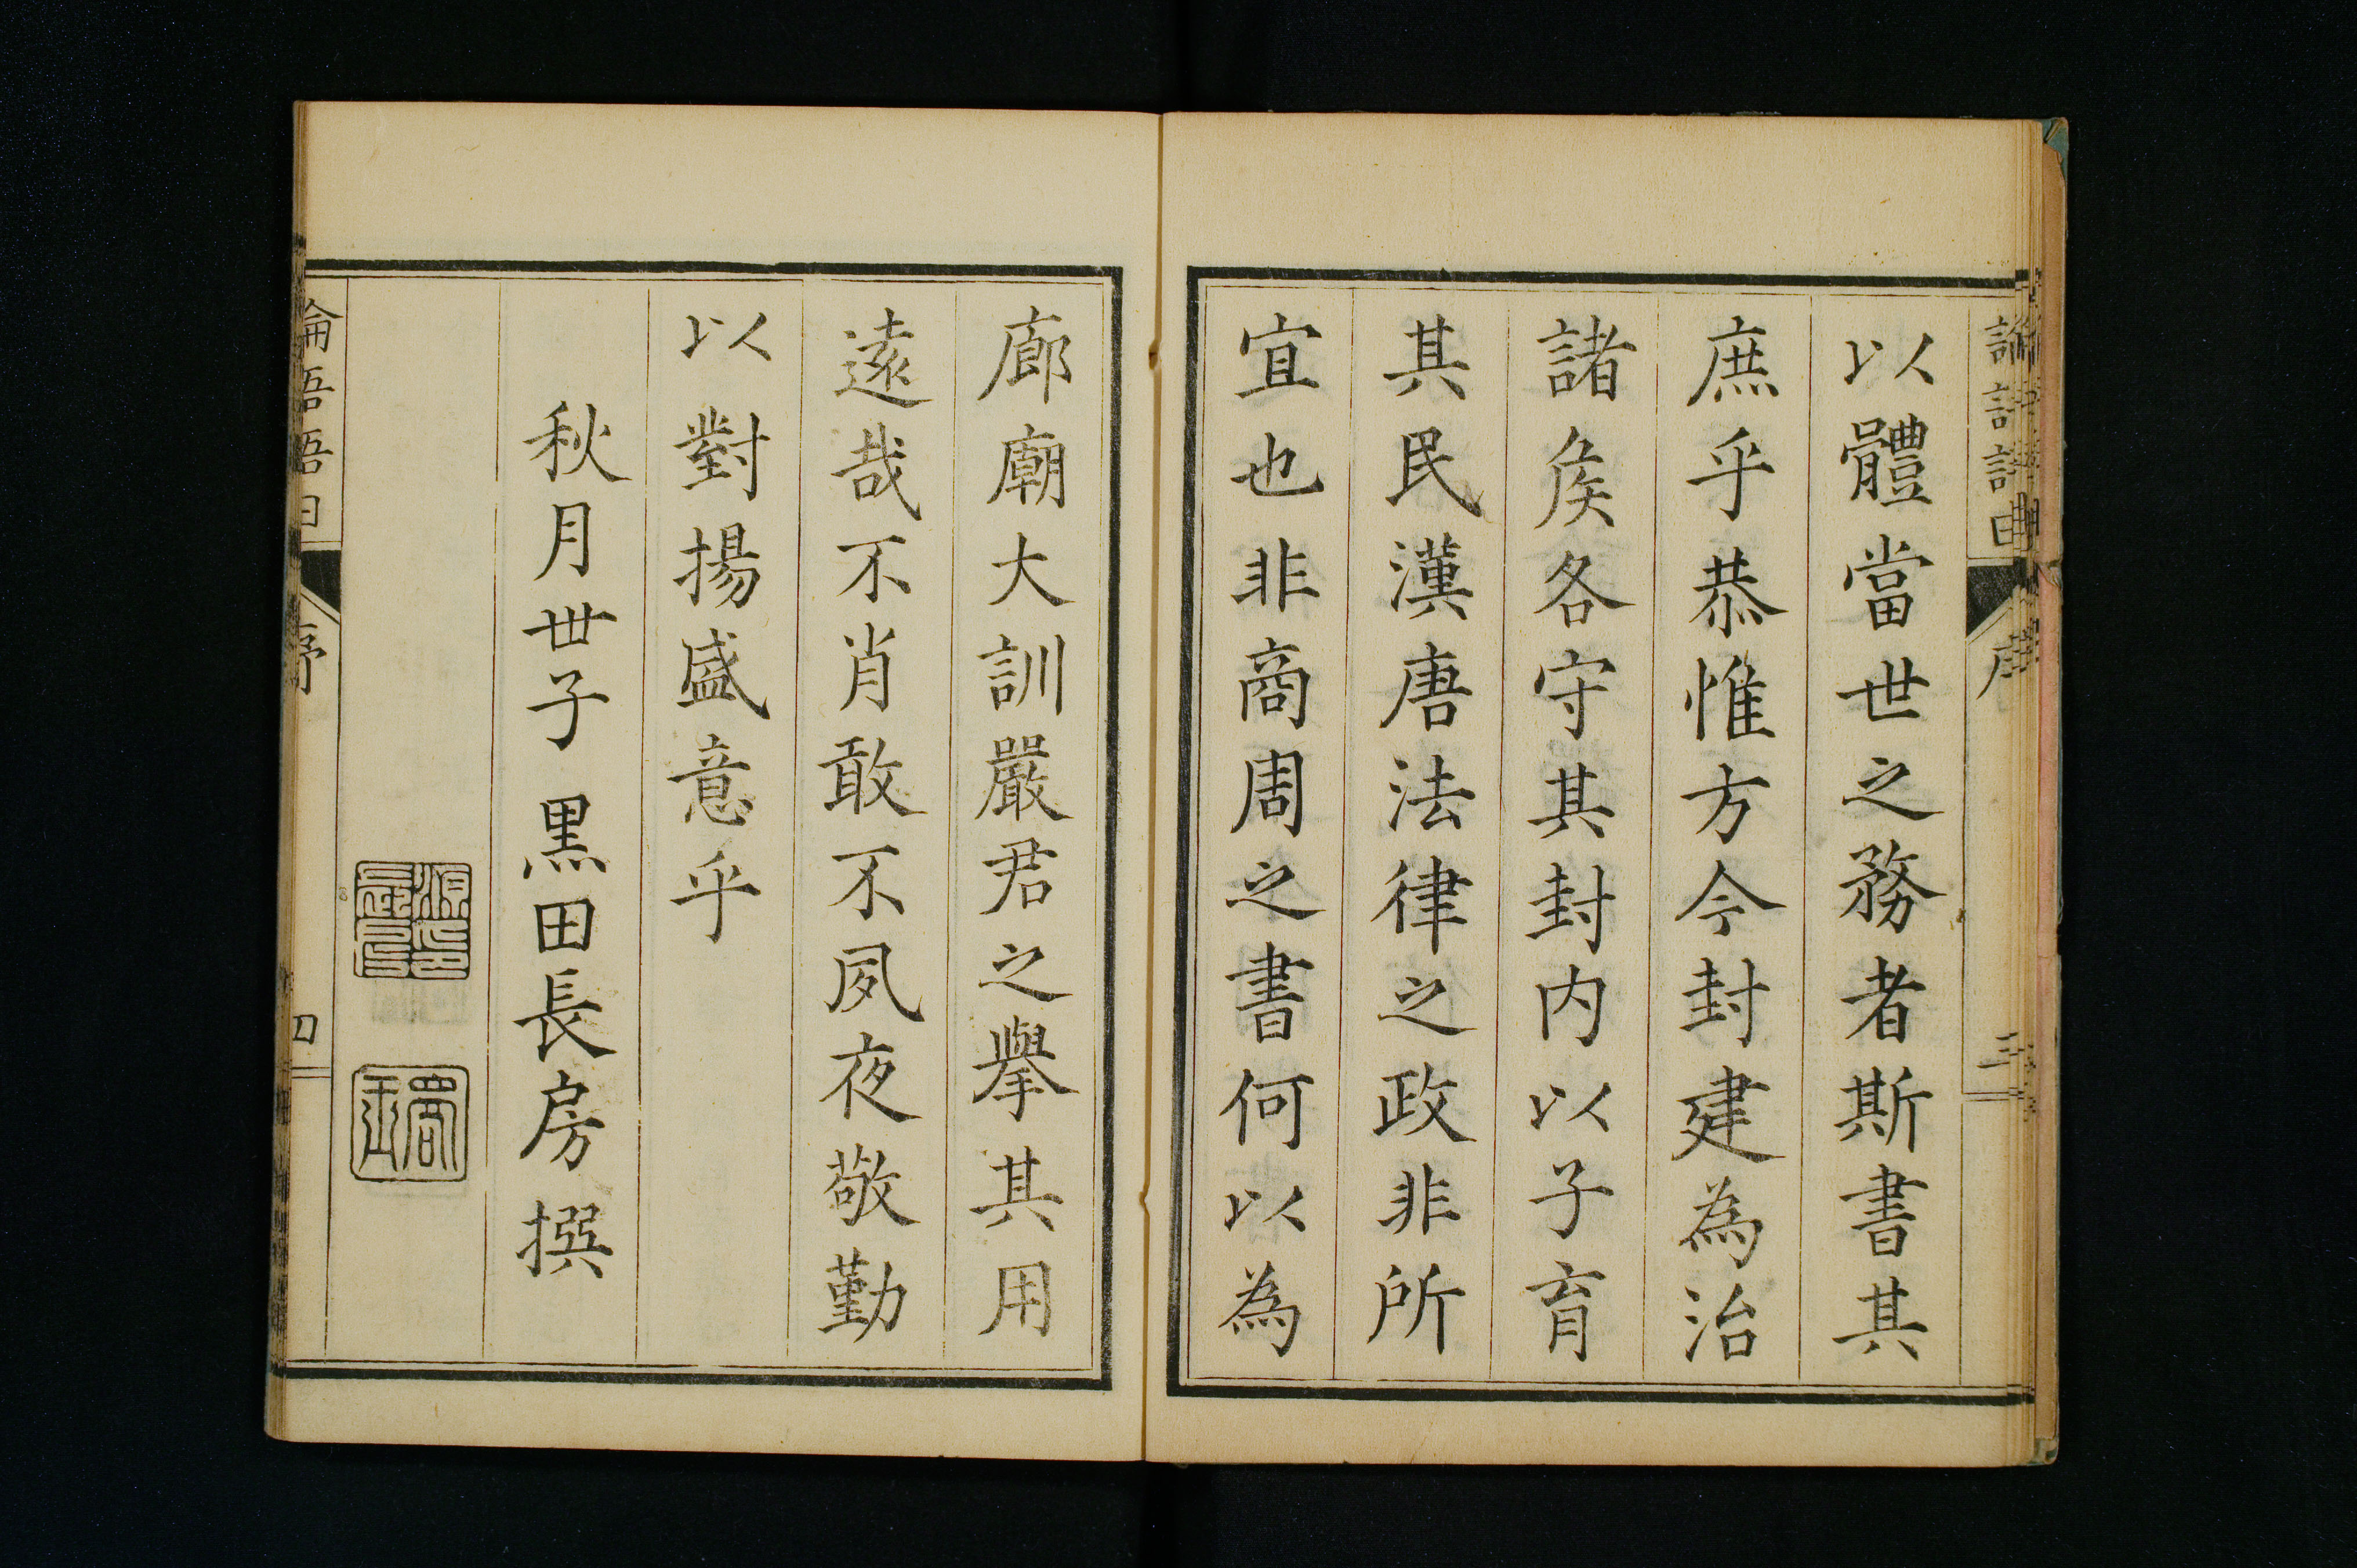 以體當世之務者斯書其
庶乎恭惟方今封建為治
諸矦各守其封内以子育
其民漢唐法律之政非所
宜也非商周之書何以為
廊廟大訓嚴君之擧其用
遠哉不肖敢不夙夜敬勤
以對揚盛意乎
秋月世子黒田長房撰
序